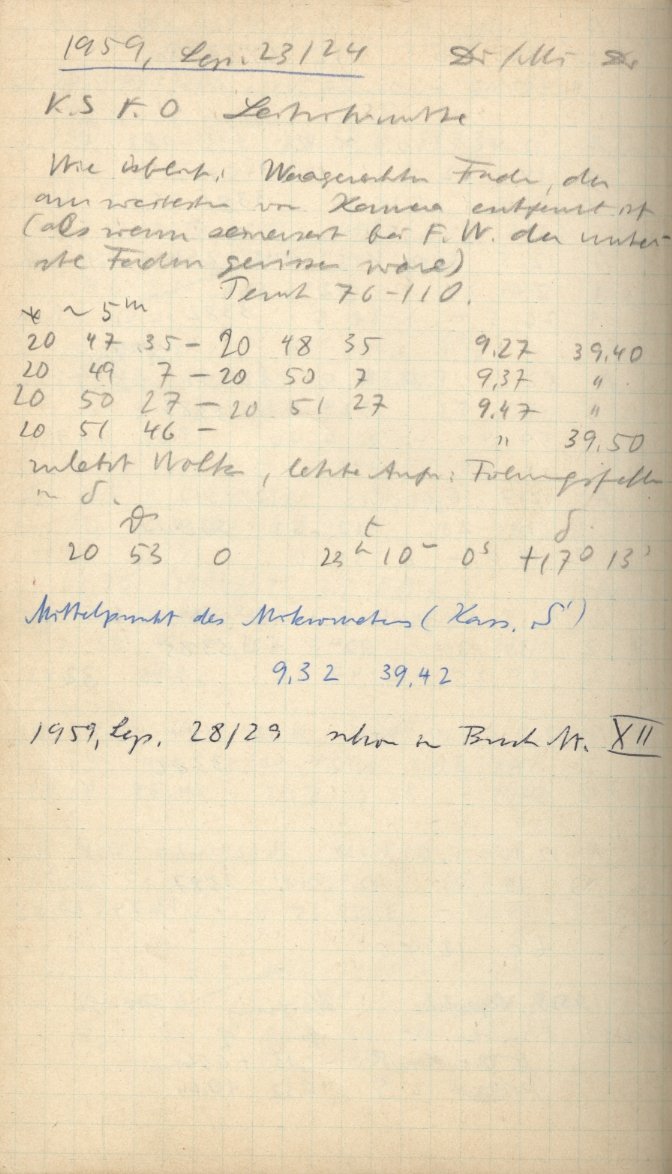 1959, Sep. 23/24 Dr
K.S F.O
Wie üblich: Waagerechter Faden, der
am weitesten von Kamera entfernt ist
(als wenn seinerzeit bei F.W. der unter-
ste Faden gerissen wäre)
76-110.
* ~ 5m
20 47 35 - 20 48 35 9.27 39.40
20 49 7 - 20 50 7 9.37 "
20 50 27 - 20 51 27 9.47 "
20 51 46 - " 39.50
zuletzt Wolken, letzte Aufn:
in δ.
t δ
20 53 0 23h 10m 0s +17° 13'
Mittelpunkt des Mikrometers (Kass, δ')
9.32 39.42
1959, Sep. 28/29 schon in Buch Nr. XII